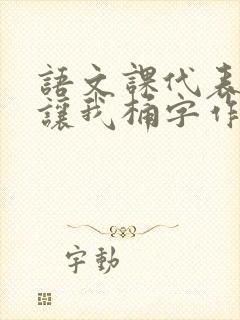 語文課代表
讓我桶字作
字動